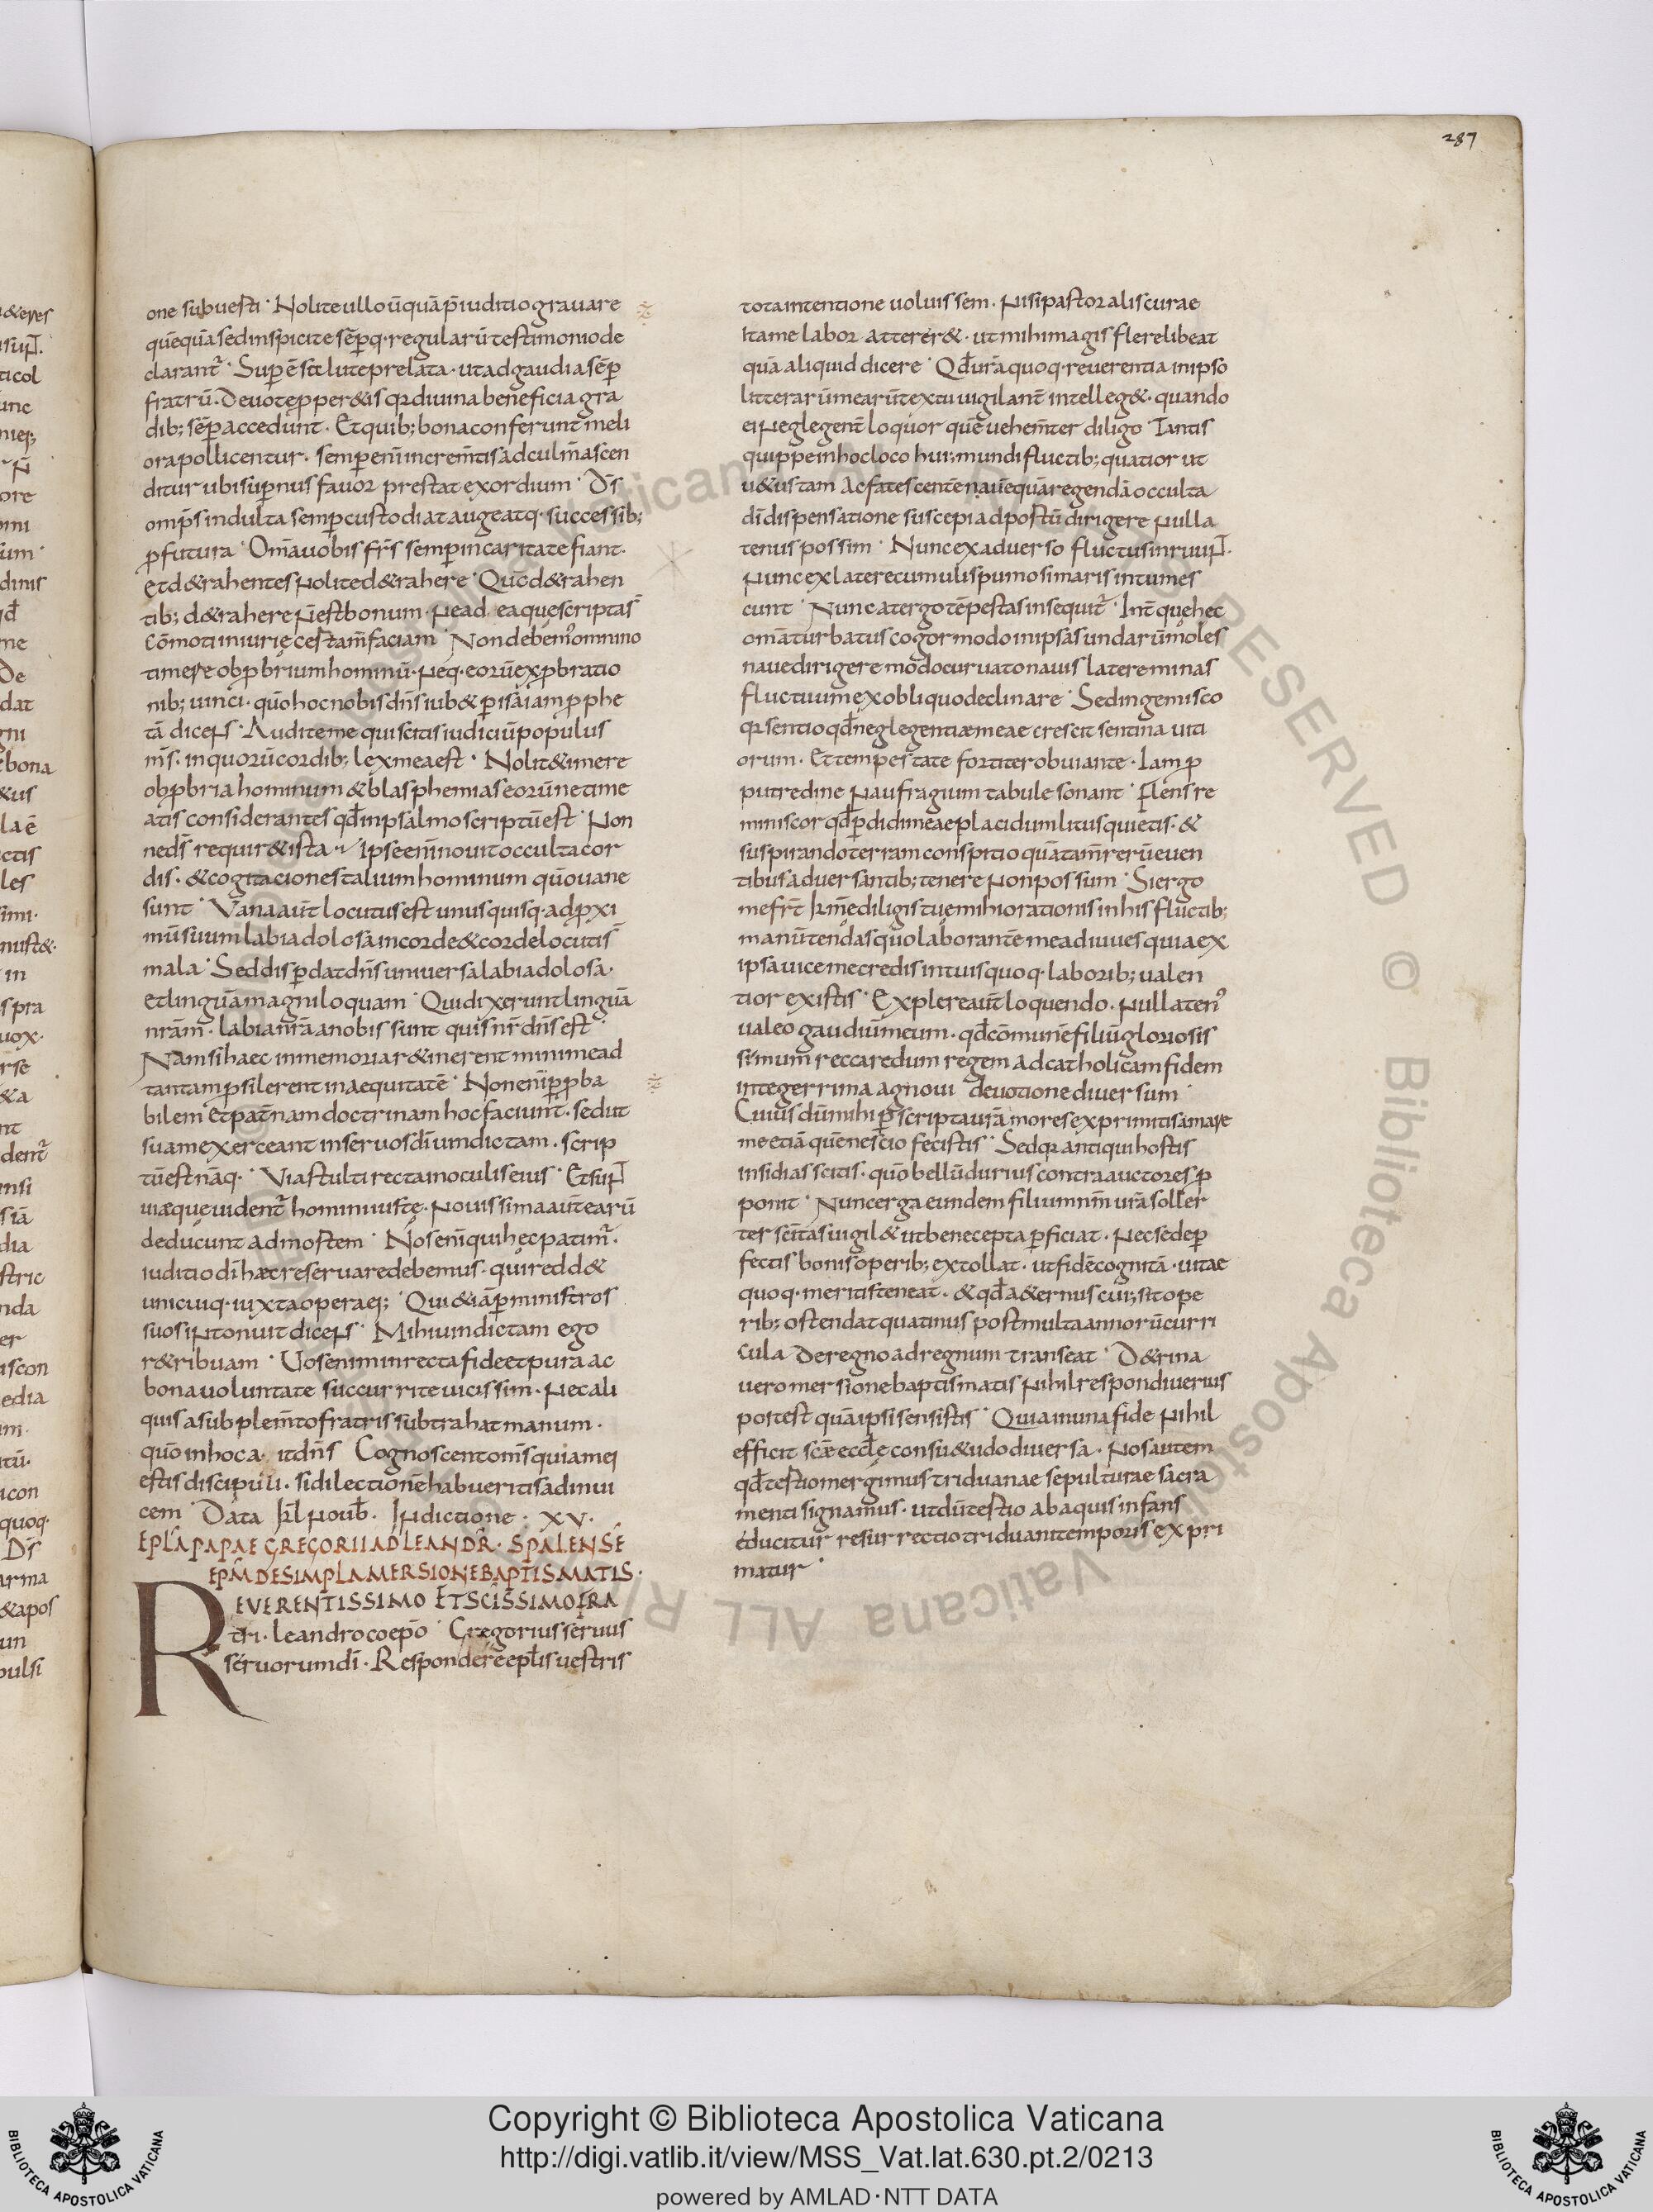 287
one subvesti · Nolite ullo ūquā p̄iuditio gravare
quēquā sed inspicite sēp q· regularū testimonio de
clarant̄ · Sup ē sti lute prelata · ut ad gaudia sēp
fratrū · Devote p per &is qr divina beneficia gra
dib; sēp accedunt · Et quib; bona conferunt meli
ora pollicentur · semper eni increm̄tis ad culm̄ ascen
ditur ubi supnus favor prestat exordium · D̄s
omp̄s indulta semp custodiat augeatq· successib;
ꝓfutura · Om̄a vobis fr̄s semp in caritate fiant·
Et d&rahentes nolite d&rahere · Qūo d&rahen
tib; d&rahere n̄ est bonum · Ne ad ea quę scripta s̄
cōmoti iniurię cesta m̄ faciam · Non debem' omnino
timere obprbrium hominū · Neq· eorū exꝓbratio
nib; vinci · quō hoc nobis dn̄s iub& p isāiam ꝓphe
tā dicens · Audite me qui scitis iudiciū populus
m̄s · in quorū cordib; lex mea est · Nolit& imere
obꝓbria hominum & blasphemias eorū ne time
atis considerantes qđ in psalmo scriptū est · Non
ne d̄s requir& ista · Ipse eni novit occulta cor
dis · & cogitaciones talium hominum qūo vane
sunt · Vana aūt locutus est unusquisq· ad ꝓxi
mū suum labia dolosa in corde & corde locuti s̄
mala · Sed disp dat dn̄s universa labia dolosa·
et linguā magniloquam · Qui dixerunt linguā
nram̄ · labia nr̄ā a nobis sunt quis nr̄ dn̄s est ·
Nam si haec in memoria r&inerent minime ad
tantam ꝓsilerent inaequitatē · Non eni ꝓpba
bilem et patnam doctrinam hoc faciunt · sed ut
suam exerceant in servos dī vindictam · scrip
tū est nāq· · Via stulti recta in oculis eius · Et sunt
viæ que vident̄ homini iuste · Novissima aūt earū
deducunt ad mostem · Nos eni qui hęc patim̄ ·
iuditio dī hæc reservare debemus · qui redd&
unicuiq· iuxta opera ei; · Qui &iā p ministros
suos intonuit dicens · Mihi vindictam ego
r&ribuam · Vos enim in recta fide et pura ac
bona voluntate succurrite vicissim · Ne cali
quis a subplem̄to fratris subtrahat manum ·
quō in hoc a· it dn̄s Cognoscent om̄s quia mei
estis discipuli · si dilectionē habueritis ad invi
cem · Data kl Novb̄ · Indictione · XV ·
EPLA PAPAE GREGORII AD LEANDR̄ · SPALENSĒ
EPM̄ DE SIMPLA MERSIONE BAPTISMATIS ·
REVERENTISSIMO ET SCĪSSIMO FRA
tri · leandro coepō · Gregorius servus
servorum dī · Respondere epl̄is vestris
tota intentione voluissem · Nisi pastoralis curae
ita me labor atterer& · ut mihi magis flere libeat
quā aliquid dicere · Qđ vr̄ā quoq· reverentia in ipso
litterarū mearū textu vigilant̄ intelleg& · quando
ei neglegent̄ loquor quē vehem̄ter diligo · Tantis
quippe in hoc loco hui; mundi fluctib; quatior ut
v&ustam ac fatescentē navē quā regendā occulta
dī dispensatione suscepi ad postū dirigere nulla
tenus possim · Nunc ex adverso fluctus inruunt·
Nunc ex latere cumuli spumosi maris intumes
cunt · Nunc a tergo tēpestas insequit̄ · Int̄ quę hec
om̄a turbatus cogor modo in ipsas undarū moles
nave dirigere modo curvato navis latere minas
fluctuum ex obliquo declinare · Sed ingemisco
qr sentio qđ neglegentiæ meae crescit sentina viti
orum · Et tempestate fortiter obviante · Iam ꝓ
putredine naufragium tabule sonant · Flens re
miniscor qđ pdidi meae placidum litus quietis · &
suspirando terram conspitio quā tam̄ rerū even
tibus adversantib; tenere non possum · Si ergo
me fr̄t km̄e diligis tuę mihi orationis in his fluctib;
manū tendas quo laborantē me adiuves quia ex
ipsa vice me credis in tuis quoq· laborib; valen
tior existis · Explere aūt loquendo · nullaten'
valeo gaudiū meum · qđ cōmunē filiū gloriosis
simum reccaredum regem ad catholicam fidem
integerrima agnovi devotione diversum ·
Cuius dū mihi p scripta vr̄ā mores exprimitis amare
me etiā quē nescio fecistis · Sed qr antiqui hostis
insidias scitis · quō bellū durius contra auctores ꝓ
ponit · Nunc erga eundem filium nr̄m vr̄ā soller
ter scīt̄as vigil& ut bene cepta pficiat · Nec se de p
fectis bonis operib; extollat · ut fidē cognitā · vitae
quoq· meritis teneat · & qđ a&ernus civ; sit ope
rib; ostendat quatinus post multa annorū curri
cula de regno ad regnum transeat · D& rina
vero mersione baptismatis nihil responđi verius
potest quā ipsi sensistis · Quia in una fide nihil
efficit scæ ecclę consu&udo diversa · Nos autem
qđ testio mergimus triduanae sepulturae sacra
menti signamus · ut dū testio ab aquis infans
educitur resurrectio triduani temporis expri
matur ·
Copyright © Biblioteca Apostolica Vaticana
http://digi.vatlib.it/view/MSS_Vat.lat.630.pt.2/0213
powered by AMLAD·NTT DATA
BIBLIOTECA APOSTOLICA VATICANA
BIBLIOTECA APOSTOLICA VATICANA